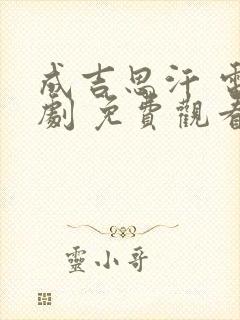 成吉思汗 電
劇 免費觀看
靈小哥